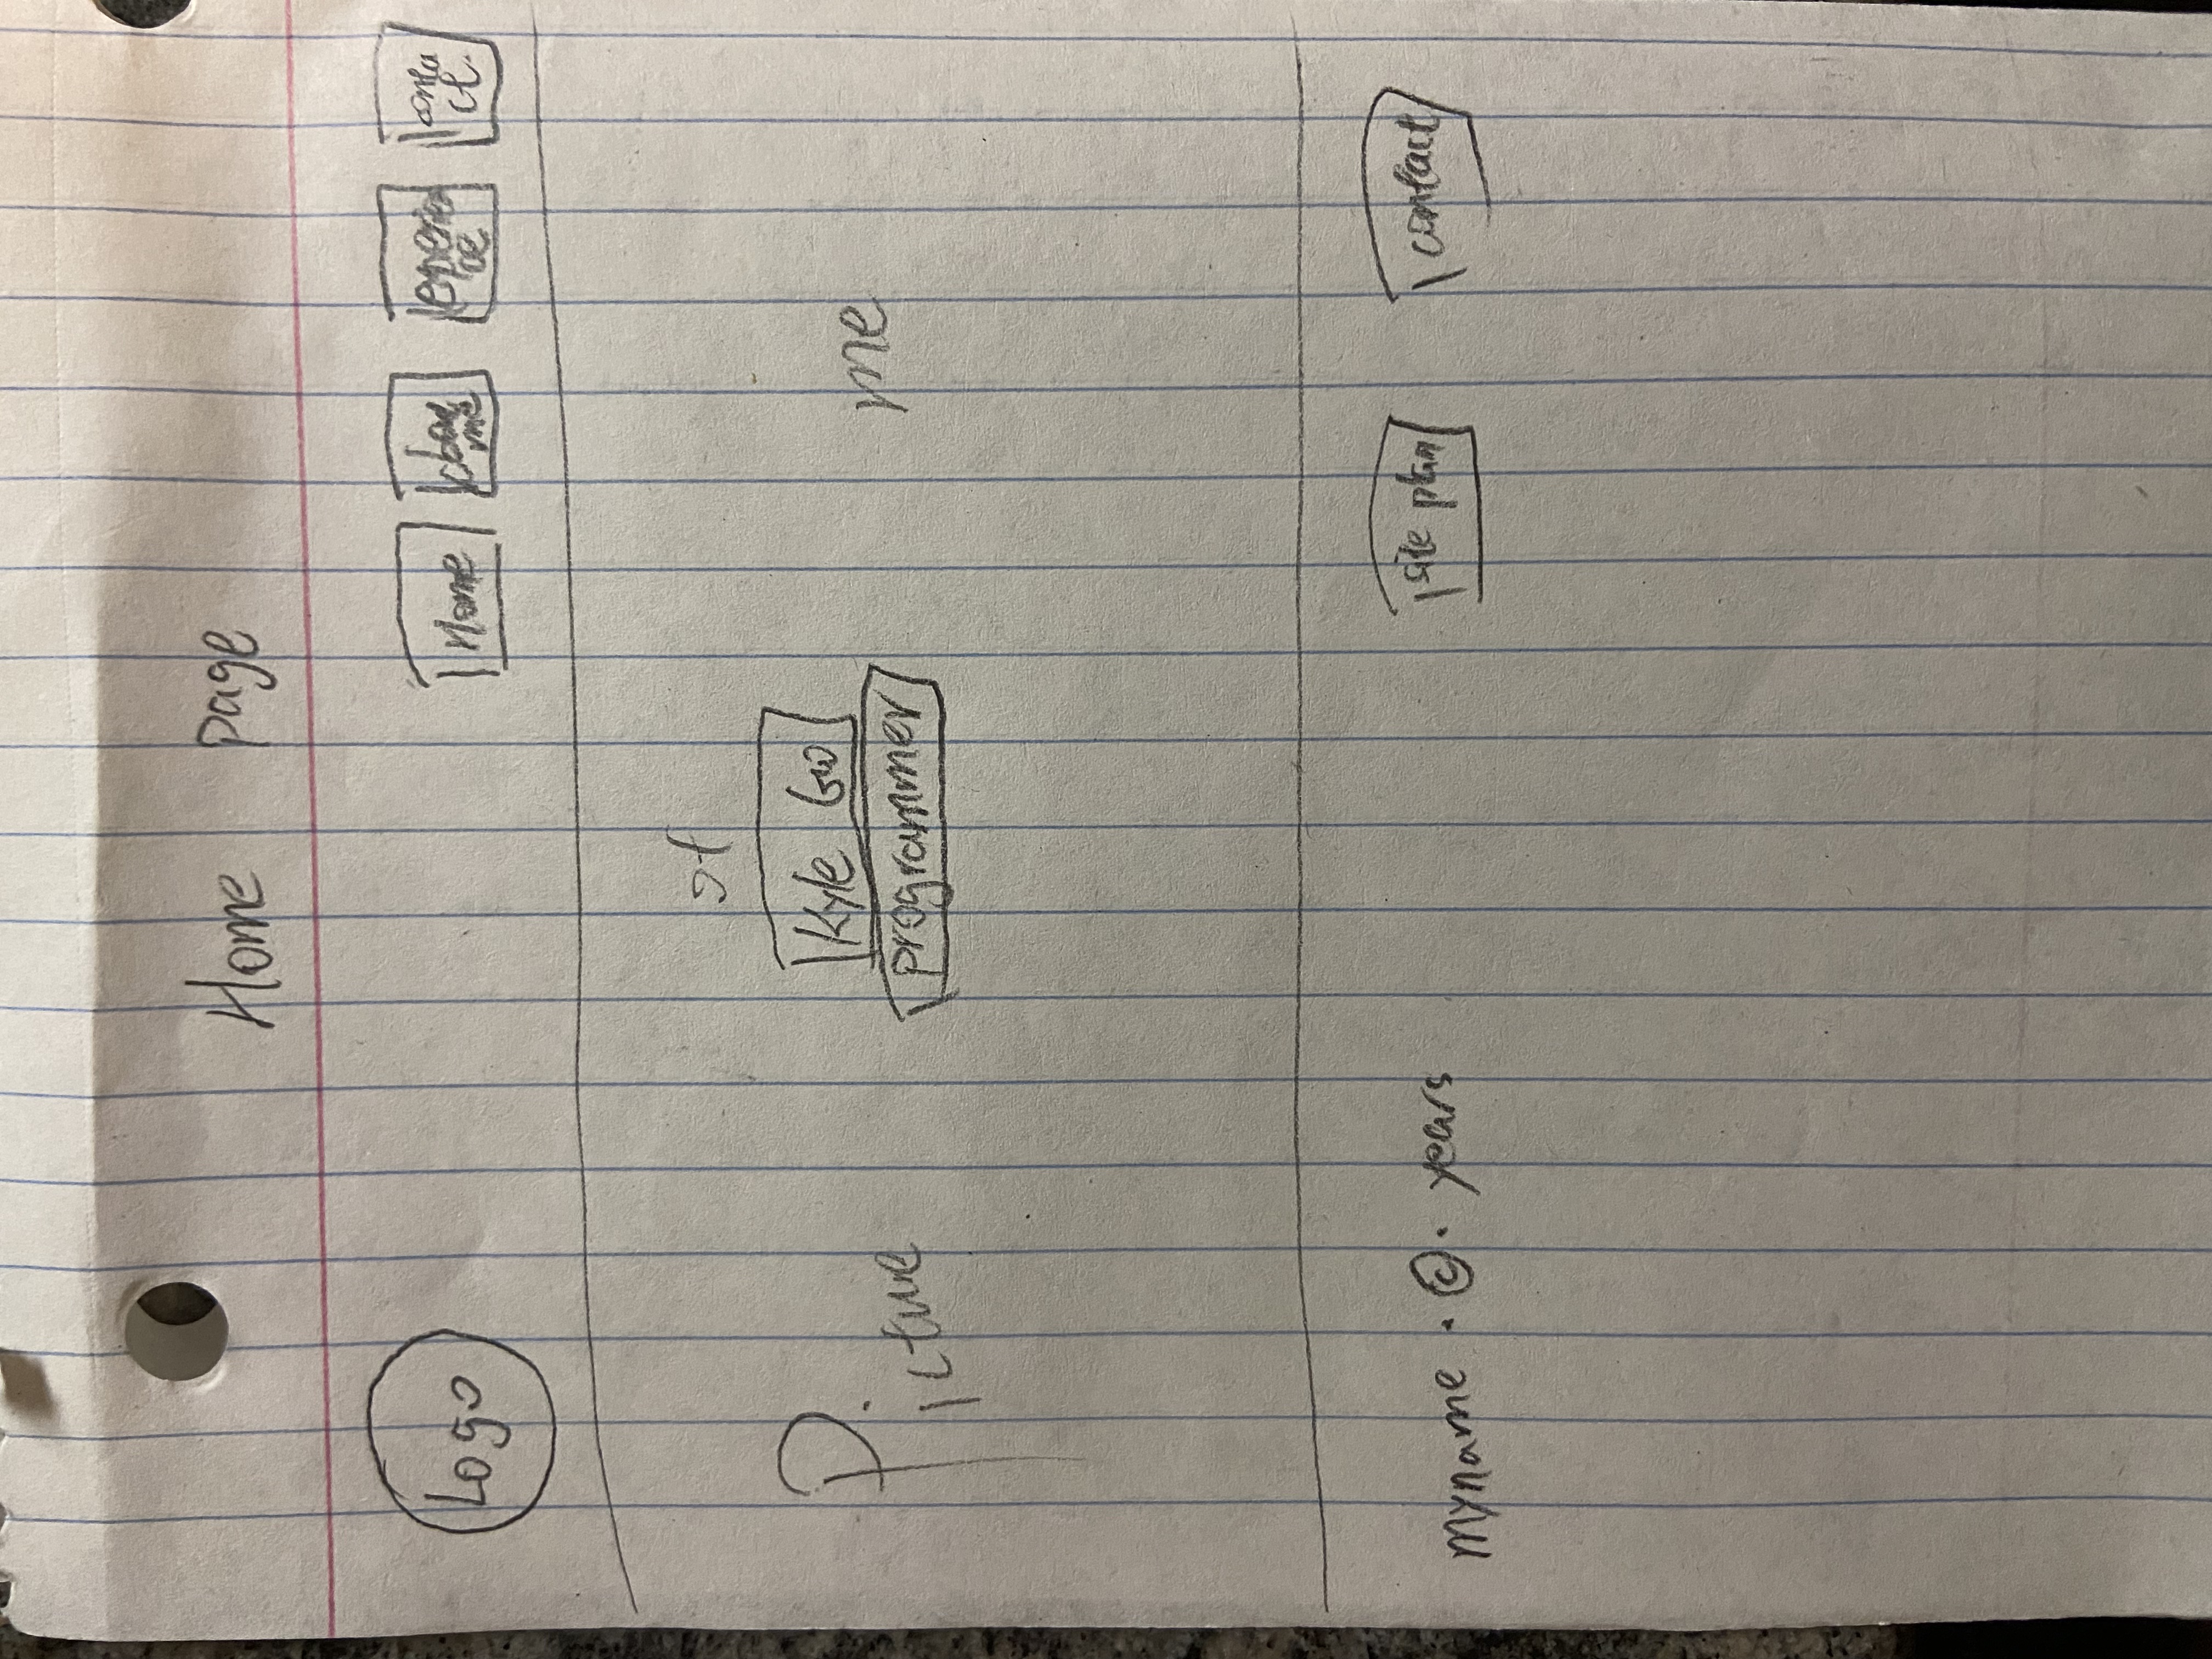 Home page
Logo
Home
about me
experien
ce
conta
ct.
Picture of me
Kyle
programmer
myname · © · years
site plan
contact